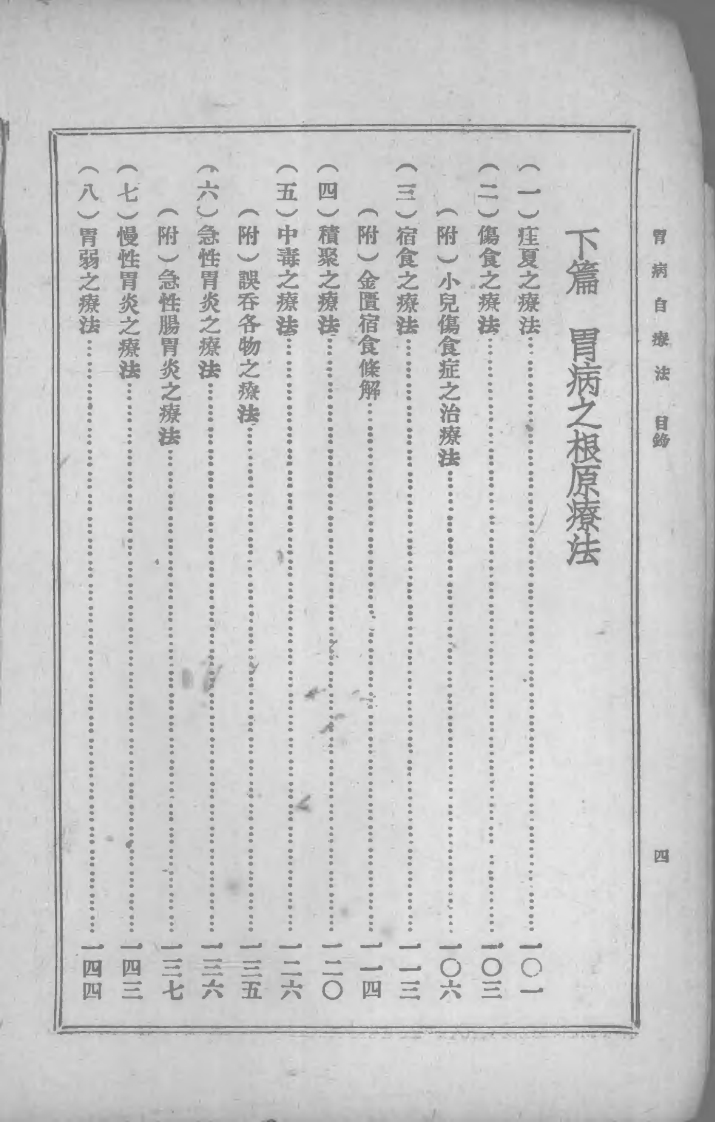 胃病自療法 目錄 四
下篇 胃病之根原療法
(一)疰夏之療法……一〇一
(二)傷食之療法……一〇三
(附)小兒傷食症之治療法……一〇六
(三)宿食之療法……一一三
(附)金匱宿食條解……一一四
(四)積聚之療法……一二〇
(五)中毒之療法……一二六
(附)誤吞各物之療法……一三五
(六)急性胃炎之療法……一三六
(附)急性腸胃炎之療法……一三七
(七)慢性胃炎之療法……一四三
(八)胃弱之療法……一四四